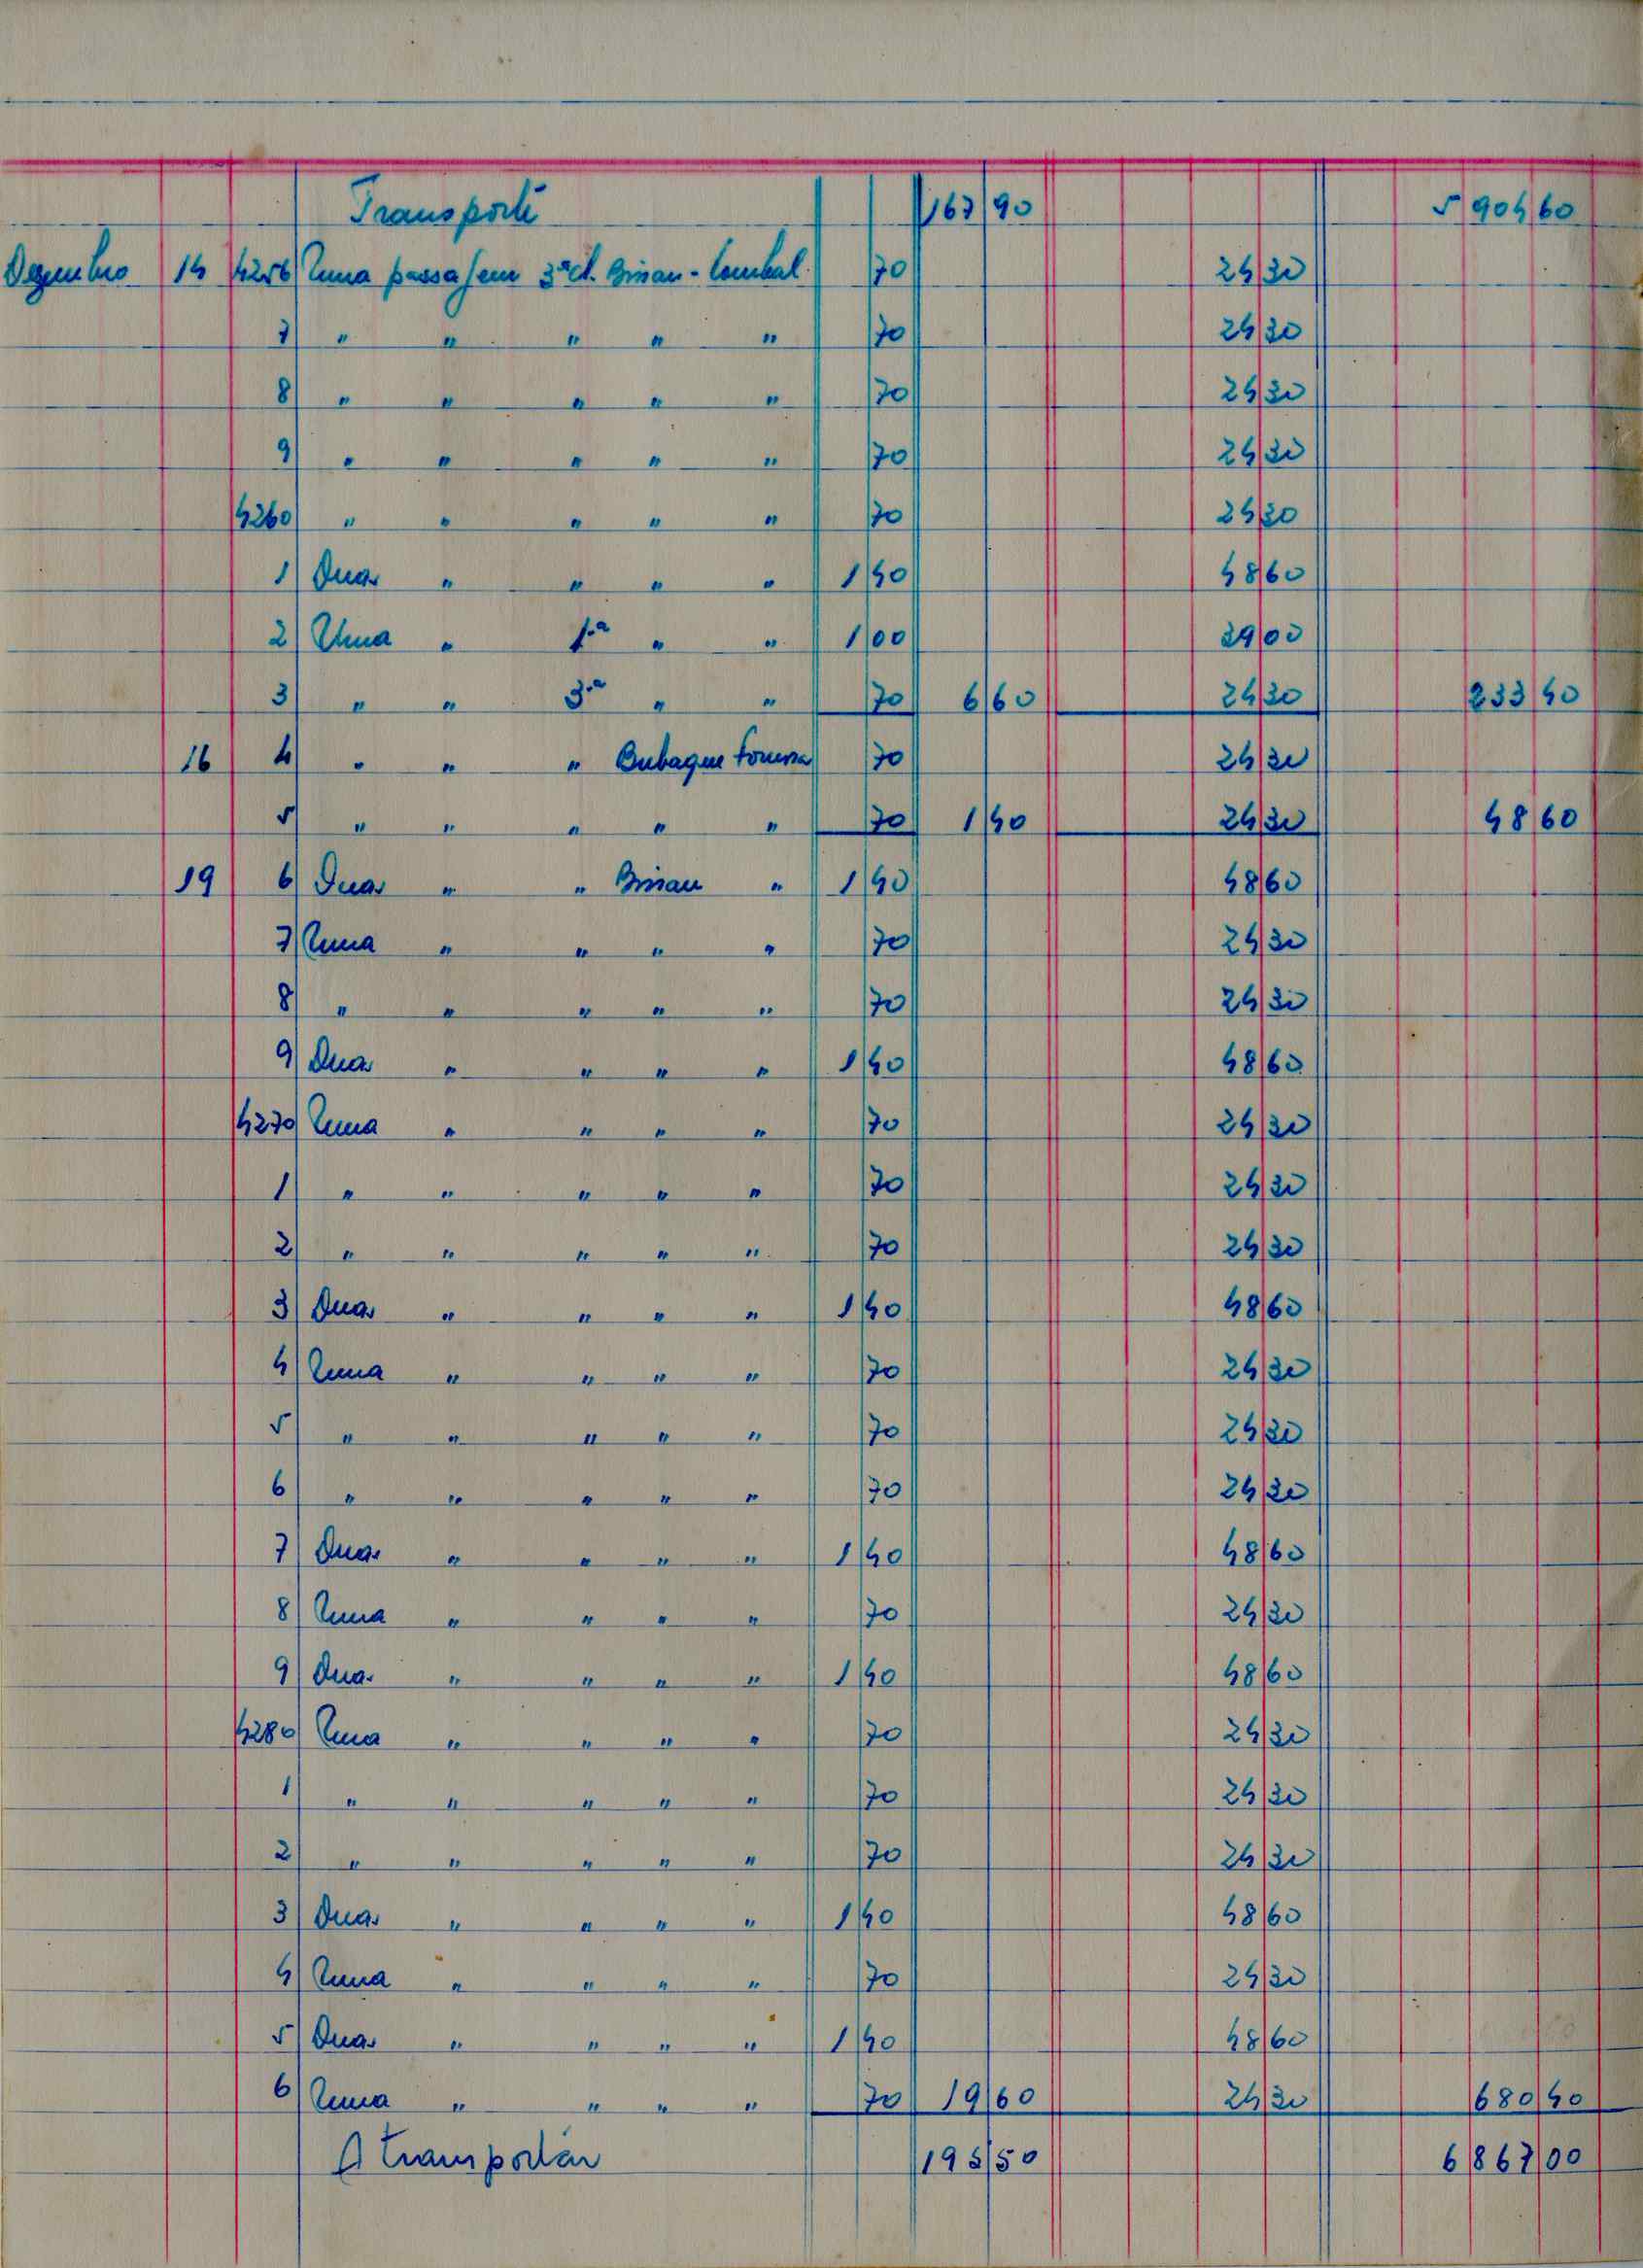 Transporte 167 90 5 904 60
Dezembro 14 4256 Uma passagem 3ª cl. Bissau - 70 24 30
7 " " " " " 70 24 30
8 " " " " " 70 24 30
9 " " " " " 70 24 30
4260 " " " " " 70 24 30
1 Duas " " " " 1 40 48 60
2 Uma " 1.ª " " 1 00 39 00
3 " " 3.ª " " 70 6 60 24 30 233 40
16 4 " " " Bubaque Formosa 70 24 30
5 " " " " " 70 1 40 24 30 48 60
19 6 Duas " " Bissau " 1 40 48 60
7 Uma " " " " 70 24 30
8 " " " " " 70 24 30
9 Duas " " " " 1 40 48 60
4270 Uma " " " " 70 24 30
1 " " " " " 70 24 30
2 " " " " " 70 24 30
3 Duas " " " " 1 40 48 60
4 Uma " " " " 70 24 30
5 " " " " " 70 24 30
6 " " " " " 70 24 30
7 Duas " " " " 1 40 48 60
8 Uma " " " " 70 24 30
9 Duas " " " " 1 40 48 60
4280 Uma " " " " 70 24 30
1 " " " " " 70 24 30
2 " " " " " 70 24 30
3 Duas " " " " 1 40 48 60
4 Uma " " " " 70 24 30
5 Duas " " " " 1 40 48 60
6 Uma " " " " 70 19 60 24 30 680 40
A transportar 195 50 6 867 00